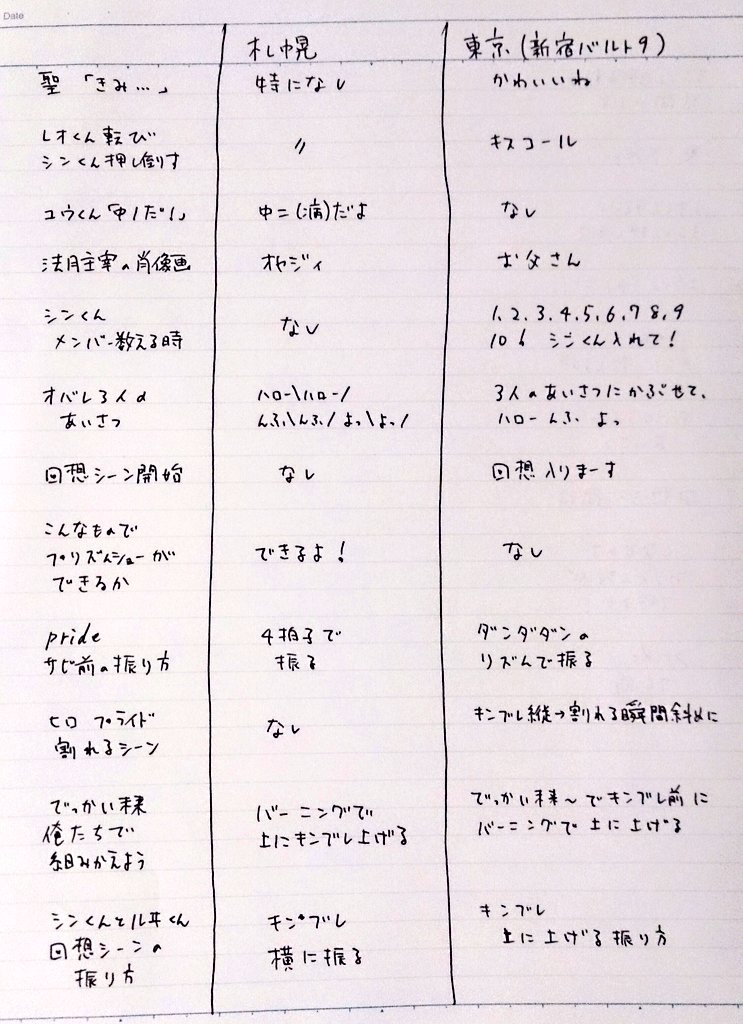 Date
札幌 東京(新宿バルト9)
聖「きみ…」 特になし かわいいね
レオくん転び
シンくん押し倒す 〃 キスコール
ユウくん「中1だ!」 中二(病)だよ なし
法月主宰の肖像画 オヤジィ お父さん
シンくん
メンバー数える時 なし 1、2、3、4、5、6、7 8、9
10 6 シンくん入れて!
オバレ3人の
あいさつ ハロー\ハロー/
んふ\んふ/ よっ\よっ/ 3人のあいさつにかぶせて、
ハロー んふ よっ
回想シーン開始 なし 回想入りまーす
こんなもので
プリズムショーが
できるか できるよ! なし
pride
サビ前の振り方 4拍子で
振る ダンダダンの
リズムで振る
ヒロ プライド
割れるシーン なし キンブレ縦→割れる瞬間斜めに
でっかい未来
俺たちで
組みかえよう バーニングで
上にキンブレ上げる でっかい未来〜でキンブレ前に
バーニングで上に上げる
シンくんとルヰくん
回想シーンの
振り方 キンブレ
横に振る キンブレ
上に上げる振り方